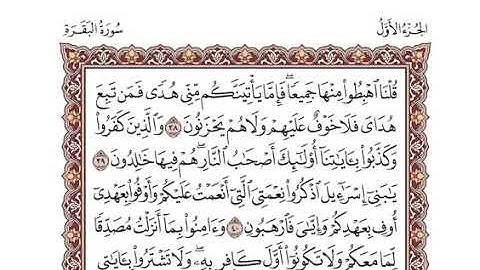 الجُزْءُ الأَوَّلُ سُورَةُ البَقَرَةِ
قُلْنَا ٱهْبِطُوا۟ مِنْهَا جَمِيعًا ۖ فَإِمَّا يَأْتِيَنَّكُم مِّنِّى هُدًى فَمَن تَبِعَ
هُدَاىَ فَلَا خَوْفٌ عَلَيْهِمْ وَلَا هُمْ يَحْزَنُونَ ٣٨ وَٱلَّذِينَ كَفَرُوا۟
وَكَذَّبُوا۟ بِـَٔايَـٰتِنَآ أُو۟لَـٰٓئِكَ أَصْحَـٰبُ ٱلنَّارِ ۖ هُمْ فِيهَا خَـٰلِدُونَ ٣٩
يَـٰبَنِىٓ إِسْرَٰٓءِيلَ ٱذْكُرُوا۟ نِعْمَتِىَ ٱلَّتِىٓ أَنْعَمْتُ عَلَيْكُمْ وَأَوْفُوا۟ بِعَهْدِىٓ
أُوفِ بِعَهْدِكُمْ وَإِيَّـٰىَ فَٱرْهَبُونِ ٤٠ وَءَامِنُوا۟ بِمَآ أَنزَلْتُ مُصَدِّقًا
لِّمَا مَعَكُمْ وَلَا تَكُونُوٓا۟ أَوَّلَ كَافِرٍۭ بِهِۦ ۖ وَلَا تَشْتَرُوا۟ بِـَٔايَـٰتِى